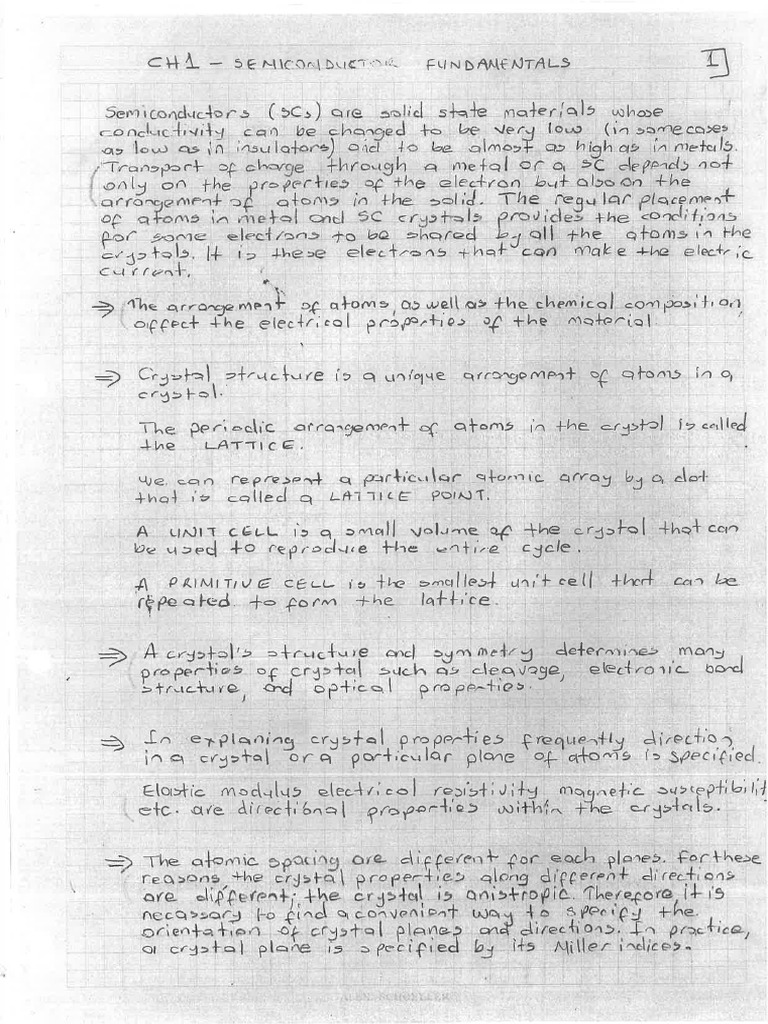 CH1 - SEMICONDUCTOR FUNDAMENTALS 1
Semiconductors (SCs) are solid state materials whose
conductivity can be changed to be very low (in some cases
as low as in insulators) and to be almost as high as in metals.
Transport of charge through a metal or a SC depends not
only on the properties of the electron but also on the
arrangement of atoms in the solid. The regular placement
of atoms in metal and SC crystals provides the conditions
for some electrons to be shared by all the atoms in the
crystals. It is these electrons that can make the electric
current.
⇒ The arrangement of atoms, as well as the chemical composition,
affect the electrical properties of the material.
⇒ Crystal structure is a unique arrangement of atoms in a
crystal.
The periodic arrangement of atoms in the crystal is called
the LATTICE.
We can represent a particular atomic array by a dot
that is called a LATTICE POINT.
A UNIT CELL is a small volume of the crystal that can
be used to reproduce the entire cycle.
A PRIMITIVE CELL is the smallest unit cell that can be
repeated to form the lattice.
⇒ A crystal's structure and symmetry determines many
properties of crystal such as cleavage, electronic band
structure, and optical properties.
⇒ In explaning crystal properties frequently direction
in a crystal or a particular plane of atoms is specified.
Elastic modulus electrical resistivity magnetic susceptibilit
etc. are directional properties within the crystals.
⇒ The atomic spacing are different for each planes. For these
reasons the crystal properties along different directions
are different; the crystal is anistropic. Therefore, it is
necassary to find a convenient way to specify the
orientation of crystal planes and directions. In practice,
a crystal plane is specified by its Miller indices.